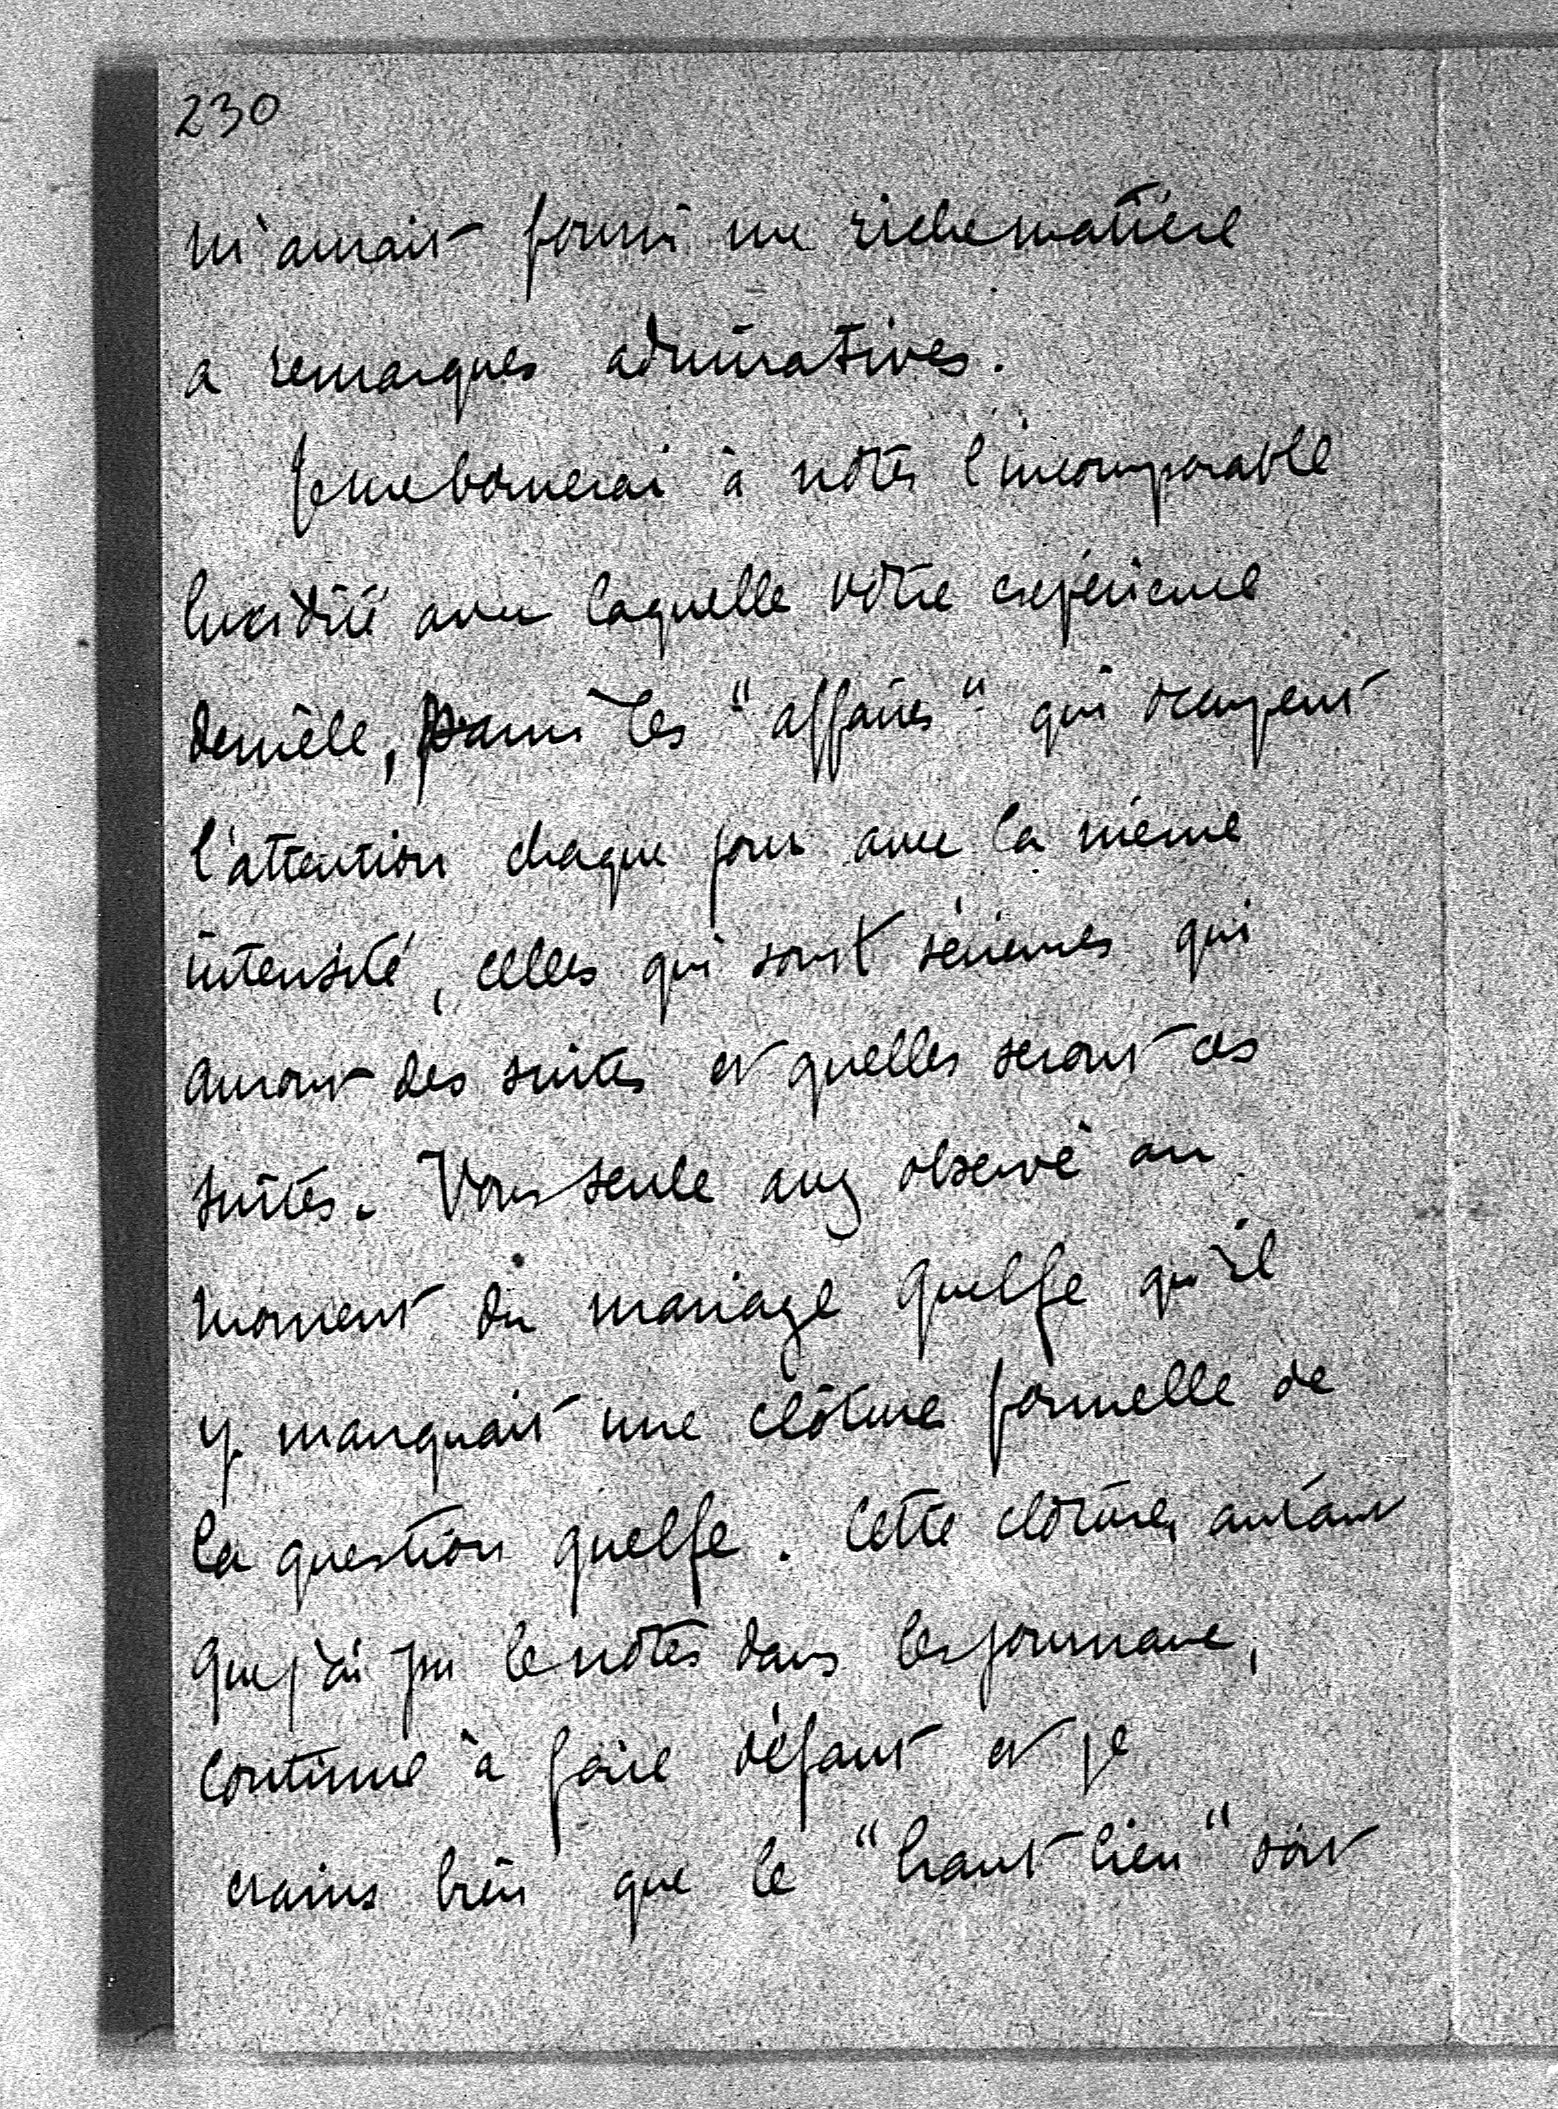 230
m'aurait fourni une riche matière
a remarques admiratives.
Je me bornerai à noter l'incomparable
lucidité avec laquelle votre expérience
démêle, parmi les "affaires" qui occupent
l'attention chaque jour avec la même
intensité, celles qui sont sérieuses qui
auront des suites et quelles seront ces
suites. Vous seule avez observé au
moment du mariage Guelfe qu'il
y manquait une clôture formelle de
la question guelfe. Cette clôture, autant
que j'ai pu le noter dans les journaux,
continue à faire défaut et je
crains bien que le "haut lieu" soit